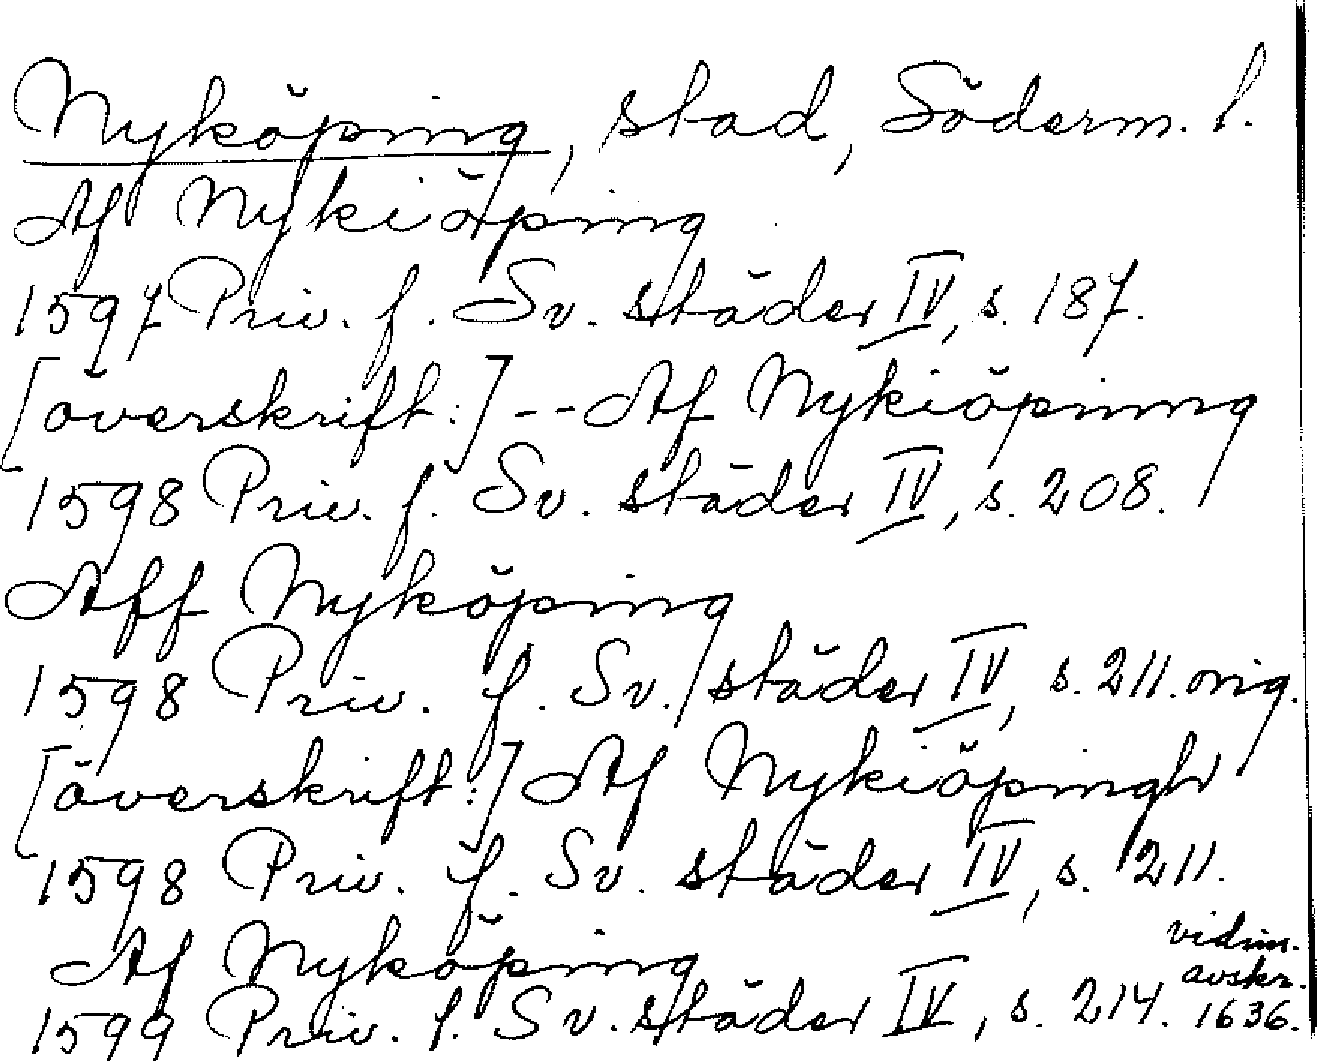 Nyköping, stad, Söderm. l.
Af Nykiöping
1597 Priv. f. Sv. städer IV, s. 187.
[överskrift:] -- Af Nykiöping
1598 Priv. f. Sv. städer IV, s. 208.
Aff Nyköping
1598 Priv. f. Sv. städer IV, s. 211. orig.
[överskrift:] Af Nykiöpingh
1598 Priv. f. Sv. städer IV, s. 211.
Af Nyköping
1599 Priv. f. Sv. städer IV, s. 214.
vidim.
avskr.
1636.